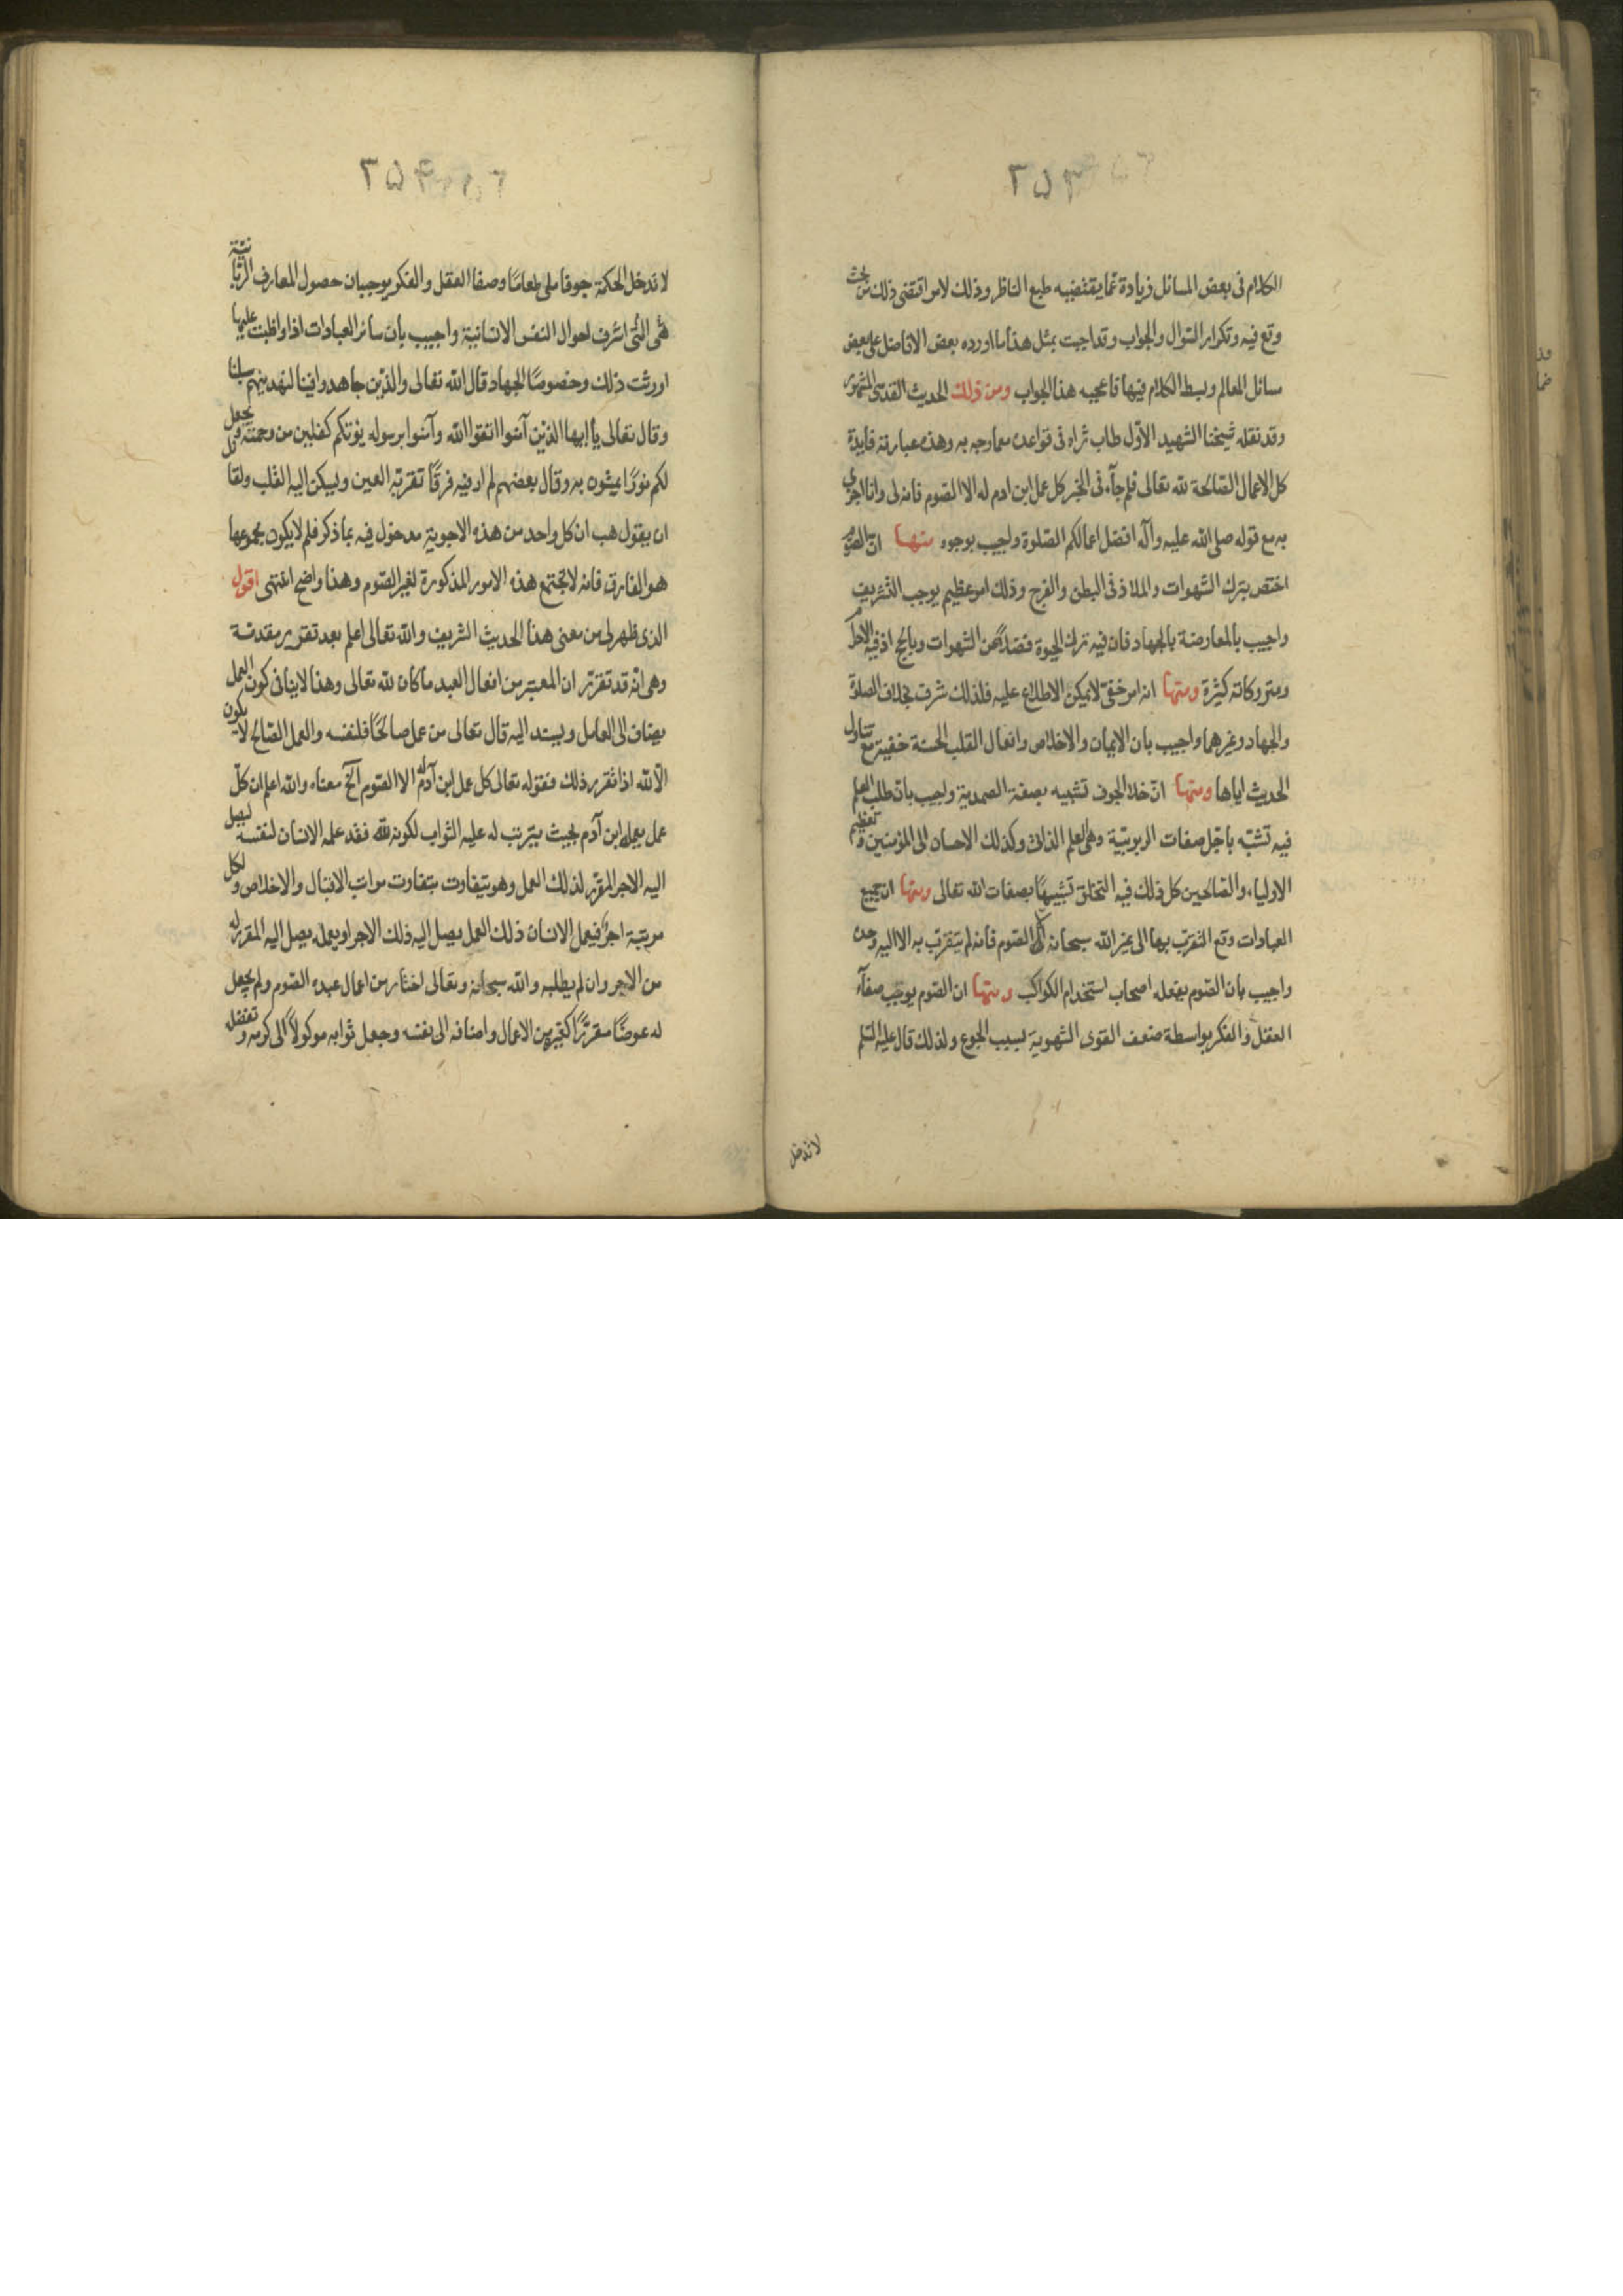 ٢٥٣
الكلام فى بعض المسائل زيادة عما يقتضيه طبع الناظر وذلك لامر اقتضى ذلك من بحث
وقع فيه وتكرار السؤال والجواب وقد اجبت بمثل هذا ما اورده بعض الافاضل على بعض
مسائل المعالم وبسط الكلام فيها فاعجبه هذا الجواب ومن ذلك الحديث القدسى المشهور
وقد نقله شيخنا الشهيد الاول طاب ثراه فى قواعده مما وجه به وهذه عبارته فايدة
كل الاعمال الصالحة لله تعالى فلم جآء فى الخبر كل عمل ابن ادم له الا الصوم فانه لى وانا اجزى
به مع قوله صلى الله عليه وآله افضل اعمالكم الصلوة واجيب بوجوه منها ان الصوم
اختص بترك الشهوات والملاذ فى البطن والفرج وذلك امر عظيم يوجب التشريف
واجيب بالمعارضة بالجهاد فان فيه ترك الحيوة فضلا عن الشهوات وبالحج اذ فيه الاحرام
ومتروكاته كثيرة ومنها انه امر خفى لا يمكن الاطلاع عليه فلذلك شرف بخلاف الصلوة
والجهاد وغيرهما واجيب بان الايمان والاخلاص وافعال القلب الحسنة خفية مع تناول
الحديث اياها ومنها ان خلاء الجوف تشبيه بصفة الصمدية واجيب بان طلب العلم
فيه تشبّه باجل صفات الربوبيّة وهى العلم الذاتى وكذلك الاحسان الى المؤمنين وتعظيم
الاولياء والصالحين كل ذلك فيه التخلق تشبيها بصفات الله تعالى ومنها ان جميع
العبادات وقع التقرب بها الى غير الله سبحانه الا الصوم فانه لم يتقرب به الا اليه وحده
واجيب بان الصوم يفعله اصحاب استخدام الكواكب ومنها ان الصوم يوجب صفآء
العقل والفكر بواسطة ضعف القوى الشهوية بسبب الجوع ولذلك قال عليه السلم
لا تدخل
٢٥٤
لا تدخل الحكمة جوفا ملى طعامًا وصفا العقل والفكر يوجبان حصول المعارف الربانيّة
هى التى اشرف احوال النفس الانسانية واجيب بان سائر العبادات اذا واظبت عليها
اورثت ذلك وخصوصًا الجهاد قال الله تعالى والذين جاهدوا فينا لنهدينهم سبلنا
وقال تعالى يا ايها الذين آمنوا اتقوا الله وآمنوا برسوله يؤتكم كفلين من رحمته ويجعل
لكم نورًا تمشون به وقال بعضهم لم ار فيه فرقًا تقر به العين ويسكن اليه القلب ولقائل
ان يقول هب ان كل واحد من هذه الاجوبة مدخول فيه بما ذكر فلم لا يكون مجموعها
هو الفارق فانه لا تجتمع هذه الامور المذكورة لغير الصوم وهذا واضح انتهى اقول
الذى ظهر لى من معنى هذا الحديث الشريف والله تعالى اعلم بعد تقرير مقدمة
وهى انه قد تقرّر ان المعتبر من افعال العبد ما كان لله تعالى وهذا لا ينافى كون العمل
يضاف الى العامل ويسند اليه قال تعالى من عمل صالحًا فلنفسه والعمل الصالح لا يكون
الّا لله اذا تقرر ذلك فقوله تعالى كل عمل ابن آدم له الا الصوم آلخ معناه والله اعلم ان كلّ
عمل يعمله ابن آدم بحيث يترتب له عليه الثواب لكونه لله فقد عمله الانسان لنفسه ليصل
اليه الاجر المقرّر لذلك العمل وهو يتفاوت بتفاوت مراتب الاقبال والاخلاص ولكل
مرتبة اجر فيعمل الانسان ذلك العمل ليصل اليه ذلك الاجر او يعمله يصل اليه المقرر له
من الاجر وان لم يطلبه والله سبحانه وتعالى اختار من اعمال عبده الصوم ولم يجعل
له عوضًا مقررًا كغيره من الاعمال واضافه الى نفسه وجعل ثوابه موكولًا الى كرمه وتفضله